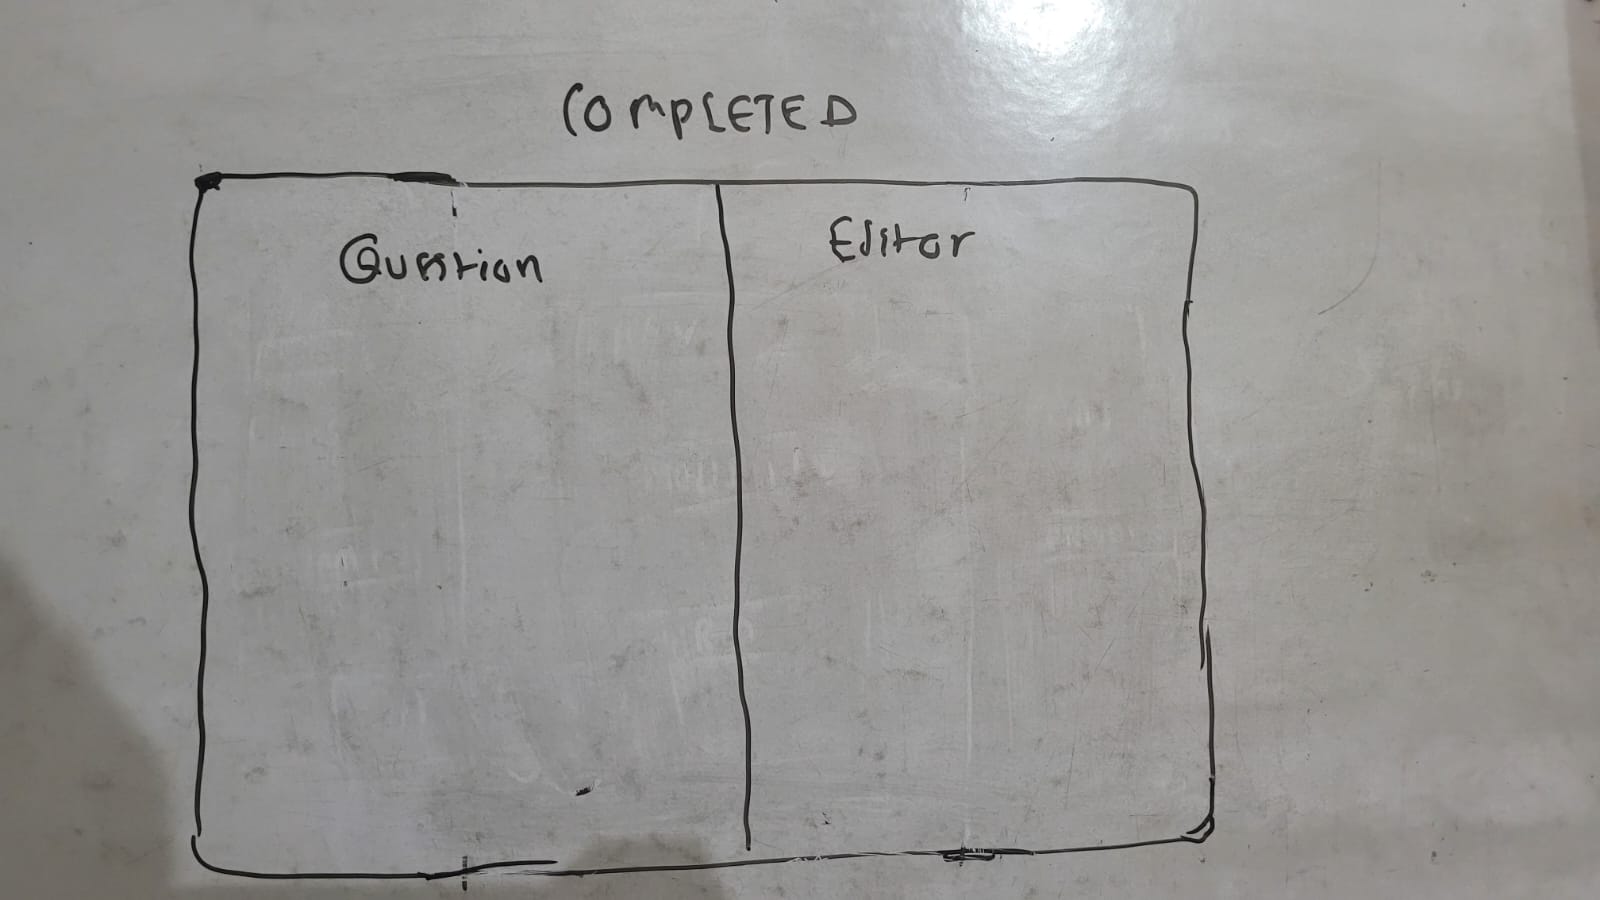 COMPLETED
Question
Editor